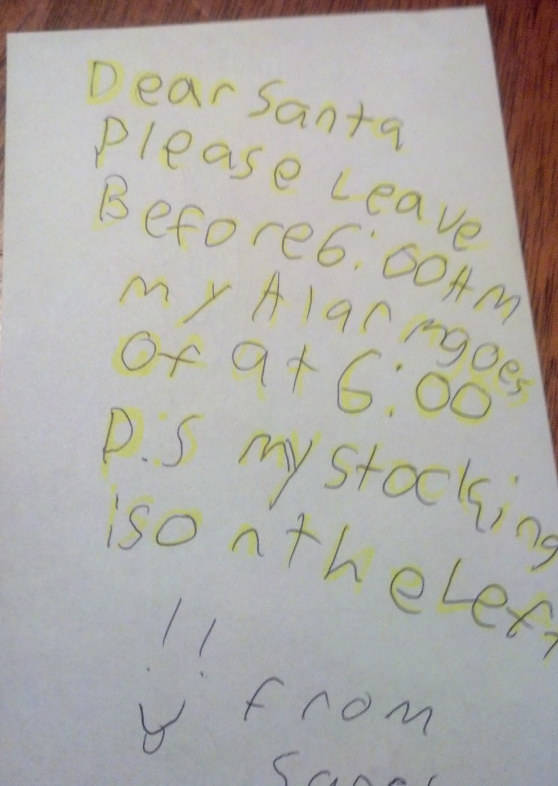 Dear Santa
Please Leave
Before 6:00 AM
my Alarm goes
Of at 6:00
P.S my stocking
is on the Left
!!
from